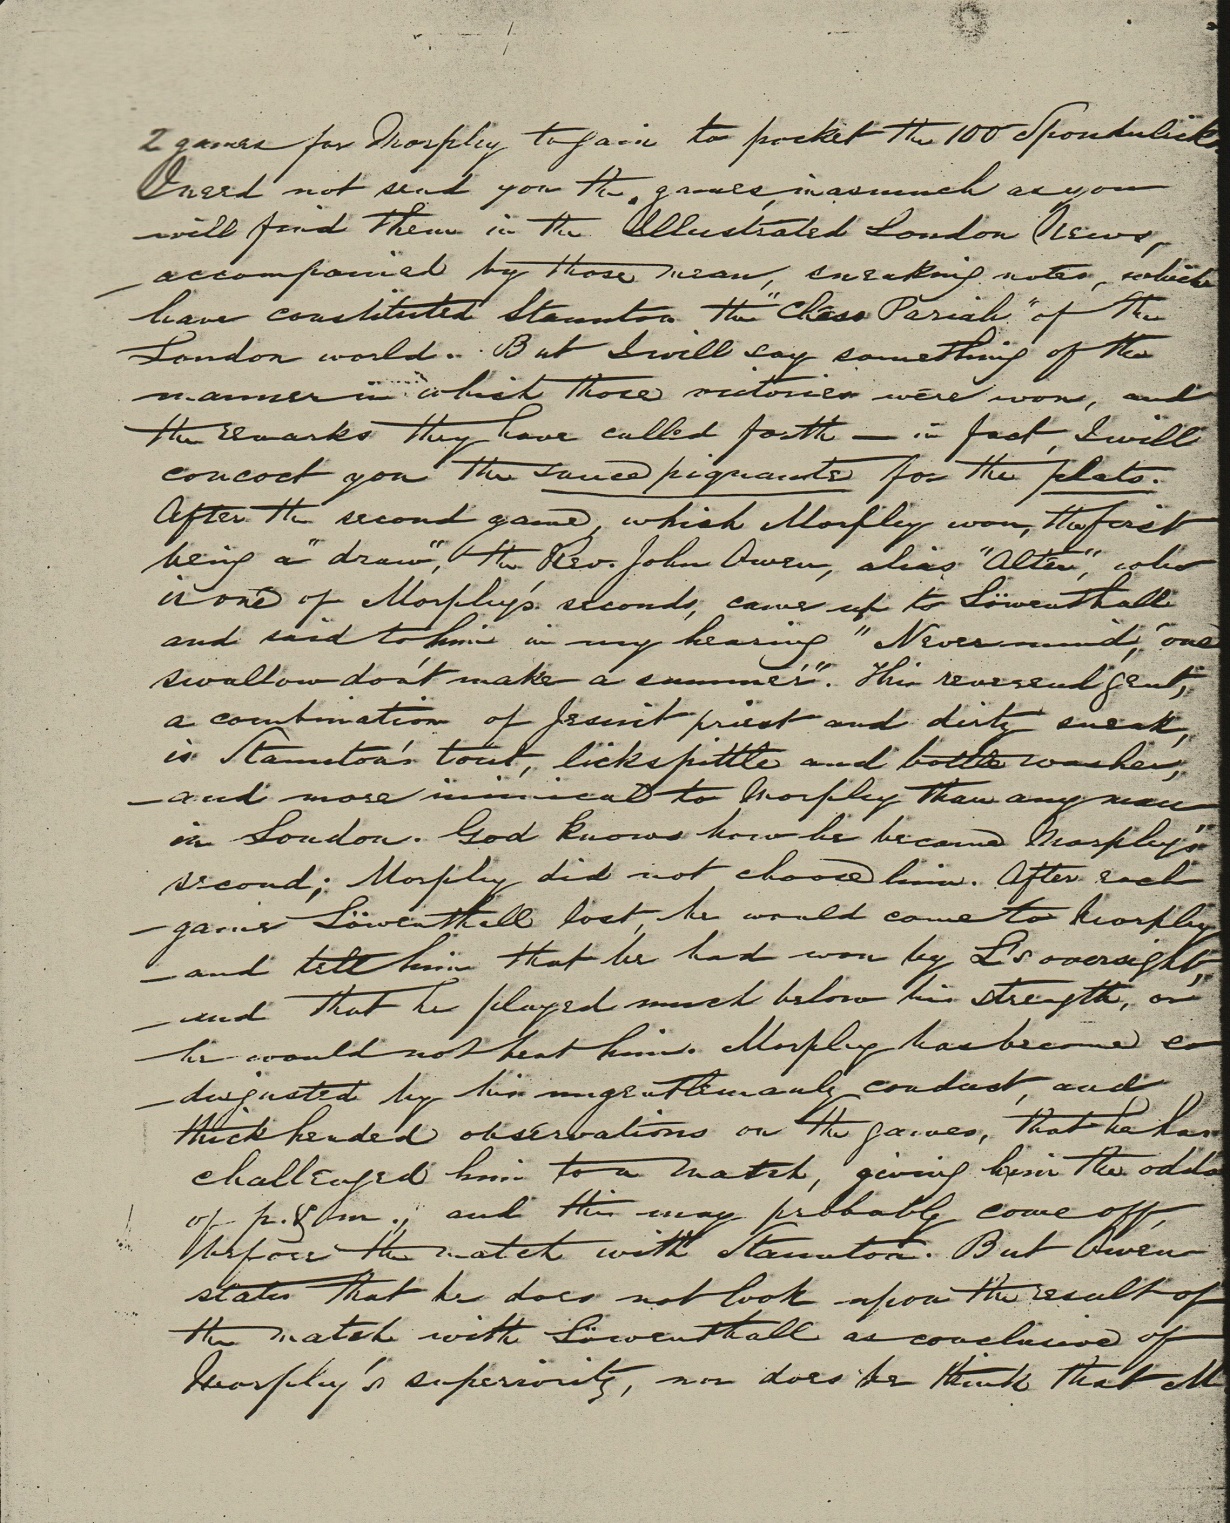 2 games for Morphy to gain to pocket the 100 Spondulicks
I need not send you the games, inasmuch as you
will find them in the Illustrated London News,
accompanied by those mean, sneaking notes, which
have constituted Staunton the "Chess Pariah" of the
London world. But I will say something of the
manner in which those victories were won, and
the remarks they have called forth — in fact, I will
concoct you the sauce piquante for the plats.
After the second game, which Morphy won, the first
being a "draw", the Rev. John Owen, alias "Alter", who
is one of Morphy's seconds, came up to Löwenthall
and said to him in my hearing "Never mind, "one
swallow don't make a summer". This reverend gent,
a combination of Jesuit priest and dirty sneak,
is Staunton's tout, lickspittle and bottle washer,
and more inimical to Morphy than any man
in London. God knows how he became Morphy's
second; Morphy did not choose him. After each
game Löwenthall lost, he would come to Morphy
and tell him that he had won by L's oversight,
and that he played much below his strength, or
he would not beat him. Morphy has become so
disgusted by his ungentlemanly conduct, and
thick headed observations on the games, that he has
challenged him to a match, giving him the odds
of p. & m., and this may probably come off,
before the match with Staunton. But Owen
states that he does not look upon the result of
the match with Löwenthall as conclusive of
Morphy's superiority, nor does he think that M